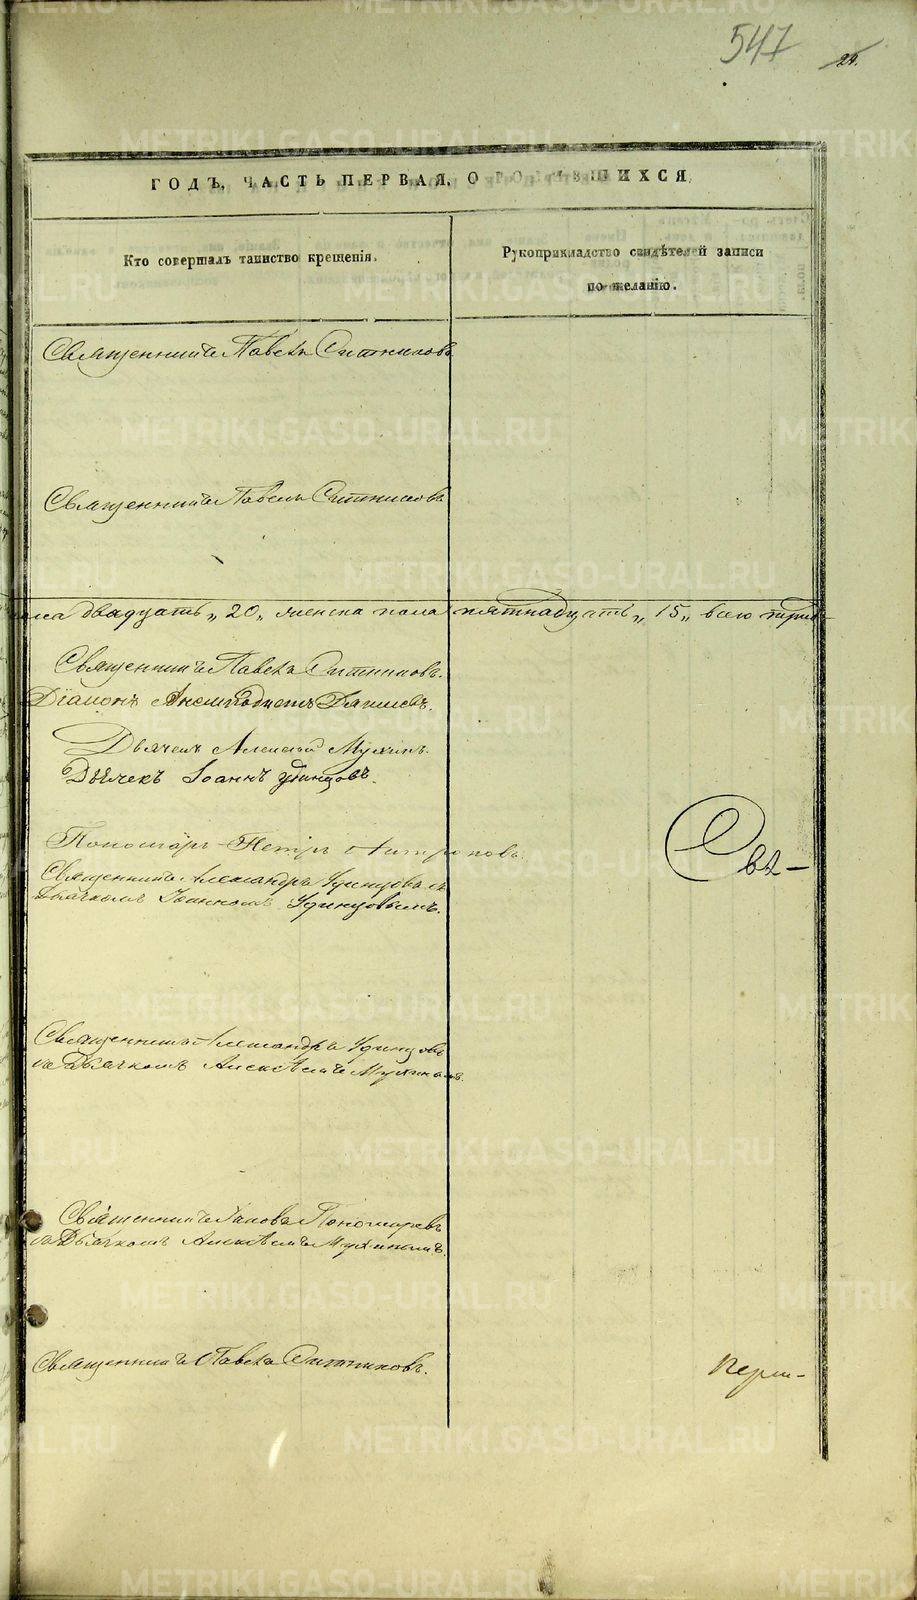 547
24.
ГОДЪ, ЧАСТЬ ПЕРВАЯ, О РОДИВШИХСЯ,
Кто совершалъ таинство крещенія.
Рукоприкладство свидѣтелей записи
по желанію.
Священникъ Павелъ Ситниковъ
Священникъ Павелъ Ситниковъ
пола двадцать „20„ женска пола пятнадцать „15„ всего
Священникъ Павелъ Ситниковъ.
Діаконъ
Дьячекъ Алексей Мухинъ
Дьячекъ Іоаннъ Удинцовъ.
Пономарь Петръ Антроповъ
Священникъ Александръ Удинцовъ съ
Дьячкомъ Іоанномъ Удинцовымъ.
Священникъ Александръ Удинцовъ
съ Дьячкомъ Алексѣемъ Мухинымъ.
Священникъ Іаковъ Пономаревъ
съ Дьячкомъ Алексѣемъ Мухинымъ.
Священникъ Павелъ Ситниковъ.
METRIKI.GASO-URAL.RU